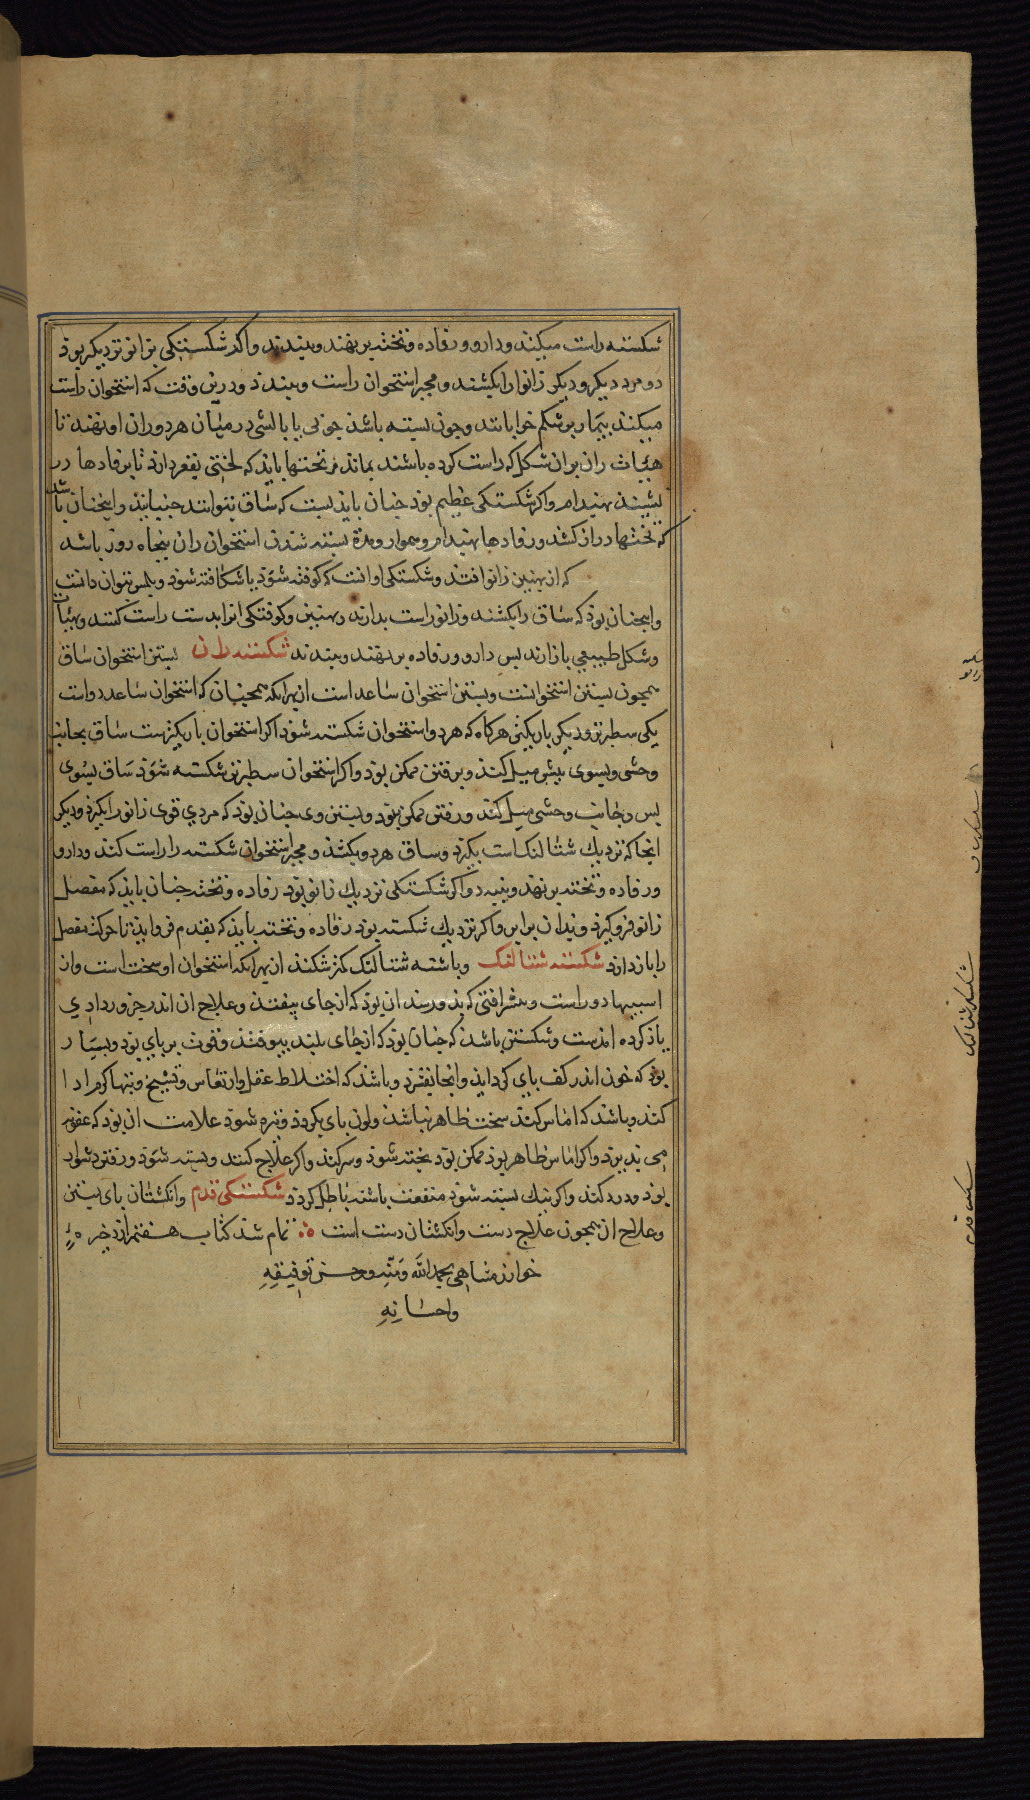 شکسته راست میکند و دارو و رفاده و تخته برنهند و ببندند و اکر شکستکی بزانو نزدیکتر بوذ
دو مرد دیکر و دیکر زانو را بکشند و مجبر استخوان راست و ببندذ و درین وقت که استخوان راست
میکند بیمار بر شکم خوابانند و جون بسته باشذ جوبی یا بالشی در میان هر دو ران او نهند تا
هیأت ران بر ان شکل که راست کرده باشند بماند و تختها بایذ که لختی بقعر دارذ تا بر فادها در
نشیند بهندام و اکر شکستکی عظیم بوذ جنان بایذ بست که ساق نتوانند جنبانیذ و انجنان باشد
که تختها دراز کشد و رفادها بهندام و هموار و مدة بسته شدن استخوان ران بنجاه روز باشد
که از بهین زانو افتد و شکستکی او انست که کوفته شوذ یا شکافته شوذ و بلمس بتوان دانست
و انجنان بوذ که ساق را بکشند و زانو راست بدارند و بهنین و کوفتکی انرا بدست راست کنند و بهیأت
و شکل طبیعی باز ارند بس دارو و رفاده برنهند و ببندند شکسته ران بستن استخوان ساق
همجون بستن استخوانست و بستن استخوان ساعد است از بهرانکه همجنان که استخوان ساعد دواست
یکی سطبرتر و دیکر باریکتر هرکاه که هر دو استخوان شکسته شوذ اکر استخوان باریکترست ساق بجانب
وحشی و بسوی بیش میل کند و برفتن ممکن بوذ و اکر استخوان سطبرتر شکسته شوذ ساق بسوی
بس و جانب وحشی میل کند و رفتن ممکن نبوذ و بستن وی جنان بوذ که مردی قوی زانو را بکیرذ و دیکر
انجا که نزدیك شتالنك است بکیرذ و ساق هر دو بکشد و مجبر استخوان شکسته را راست کند و دارو
و رفاده و تخته برنهد و ببندد و اکر شکستکی نزدیك زانو بوذ رفاده و تخته جنان بایذ که مفصل
زانو فرو کیرذ و بدان برابر و اکر نزدیك شکسته بوذ رفاده و تخته بایذ که بقدم فرو ایذ تا حرکت مفصل
را باز دارذ شکسته شتالنک و باشنه شتالنک کمتر شکند از بهرانکه استخوان او سخت است و از
اسیبها دور است و بیشتر افتی که بذو رسد ان بوذ که از جای بیفتد و علاج ان اندر جزو ردادی
یاذ کرده امذست و شکستن باشد که جنان بوذ که از جای بلند بیوفتد و قوت بر بای بوذ و بسیار
بوذ که خون اندر کف بای کرد ایذ و انجا بفسرذ و باشذ که اختلاط عقل و ارتعاش و تشنج و تبها کرم ارا
کند و باشد که اماس کند سخت ظاهر نباشد و لون بای بکردد و تیره شوذ علامت ان بوذ که عفونه
می بذیرد و اکر اماس ظاهر بوذ ممکن بوذ بخته شوذ و سر کند و اکر علاج کنند و بسته شوذ و رفتن دشوار
بوذ و درد کند و اکر نیك بسته شوذ منفعت باشنه باطل کردد شکستکی قدم و انکشتان بای بستن
و علاج ان همجون علاج دست و انکشتان دست است تمام شد کتاب هفتم از ذخیره
خوارزمشاهی بحمدالله و منه و حسن توفیقه
و احسانه
شکستن شتالنک
شکستن قدم